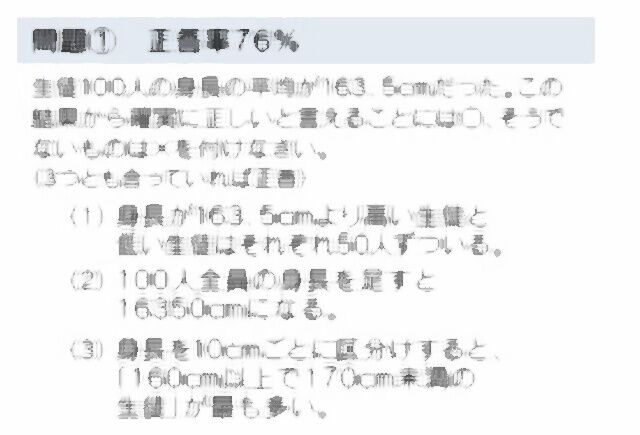 問題① 正答率76%
生徒100人の身長の平均が163.5cmだった。この
結果から確実に正しいと言えることには○、そうで
ないものは×を付けなさい。
(3つとも合っていれば正答)
(1) 身長が163.5cmより高い生徒と
低い生徒はそれぞれ50人ずついる。
(2) 100人全員の身長を足すと
16350cmになる。
(3) 身長を10cmごとに区分けすると、
「160cm以上で170cm未満の
生徒」が最も多い。